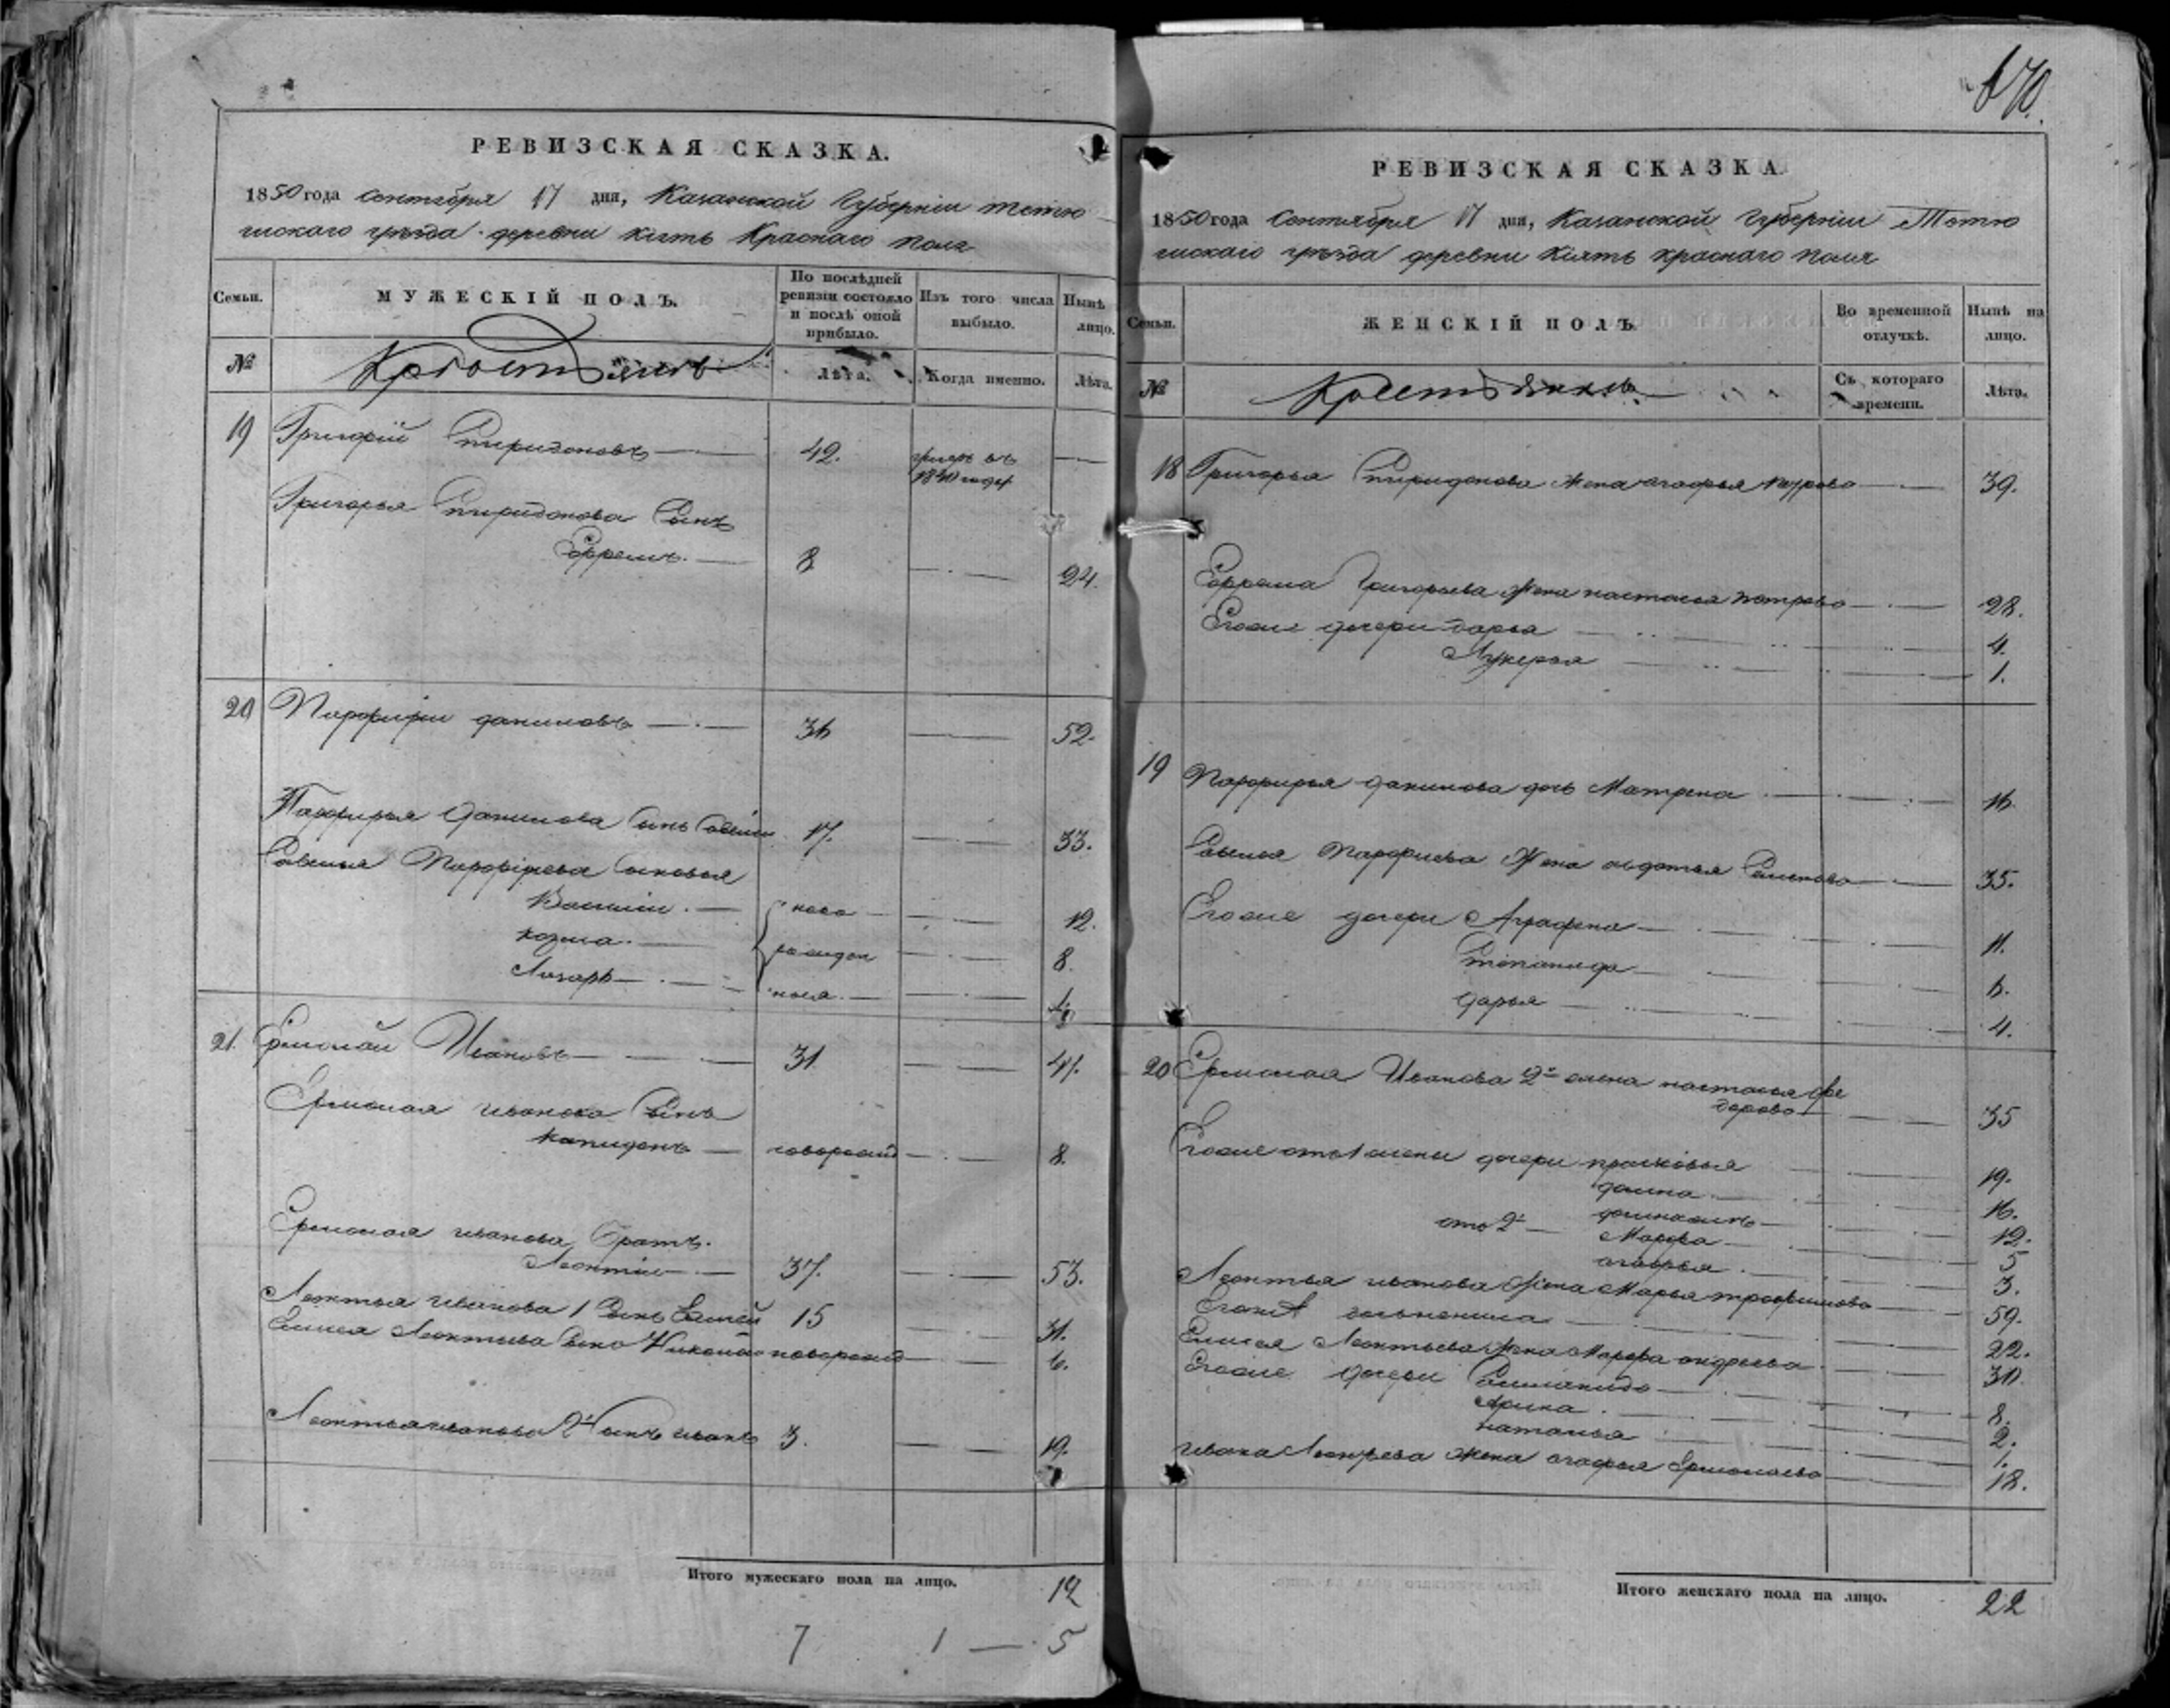 670.
РЕВИЗСКАЯ СКАЗКА.
1850 года сентября 17 дня, Казанской Губерніи Тетю
шскаго уѣзда деревни Кіять Краснаго поля
Семьи.
МУЖЕСКІЙ ПОЛЪ.
По послѣдней ревизіи состояло и послѣ оной прибыло.
Изъ того числа выбыло.
Нынѣ на лицо.
№
Крестьянъ
Лѣта.
Когда именно.
Лѣта.
19 Григорій Спиридоновъ 42. умеръ въ 1840 годѣ
Григорья Спиридонова Сынъ
Ефремъ. 8 24.
20 Парфирій даниловъ 36 52.
Парфирья Данилова Сынъ Савелій 17. 33.
Савелья Парфирьева Сыновья
Василій ново 12.
козма рожден 8.
Лазарь ныя 4
21. Ермолай Ивановъ 31 47.
Ермолая иванова Сынъ
капидонъ новорожд 8.
Ермолая иванова Братъ
Леонтій 37. 53.
Леонтья иванова 1 Сынъ Елисей 15 31.
Елисея Леонтьева Сынъ Николай новорожд 6.
Леонтья иванова 2й Сынъ иванъ 3. 19.
Итого мужескаго пола на лицо. 12
7 1 — 5
РЕВИЗСКАЯ СКАЗКА.
1850 года Сентября 17 дня, Казанской Губерніи Тетю
шскаго уѣзда деревни Кіять краснаго поля
Семьи.
ЖЕНСКІЙ ПОЛЪ.
Во временной отлучкѣ.
Нынѣ на лицо.
№
Крестьянка
Съ котораго времени.
Лѣта.
18 Григорья Спиридонова жена агафья 39.
Ефрема Григорьева жена настасья петрова 28.
Егоже дочери дарья 4.
Лукерья 1.
19 Парфирья данилова дочь Матрена 16.
Савелья Парфирьева Жена авдотья Семенова 35.
Егоже дочери Аграфена 11.
Степанида 6.
дарья 4.
20 Ермолая Иванова 2я жена настасья фе
дорова 35
Егоже отъ 1 жены дочери прасковья 19.
домна 16.
12.
отъ 2й Марфа 5
агафья 3.
Леонтья иванова Жена Марья трофимова 59.
22.
Елисея Леонтьева Жена Марфа андреева 30.
Егоже дочери 8.
Арина 2.
наталья 1.
ивана Леонтьева жена агафья Ермолаева 18.
Итого женскаго пола на лицо. 22